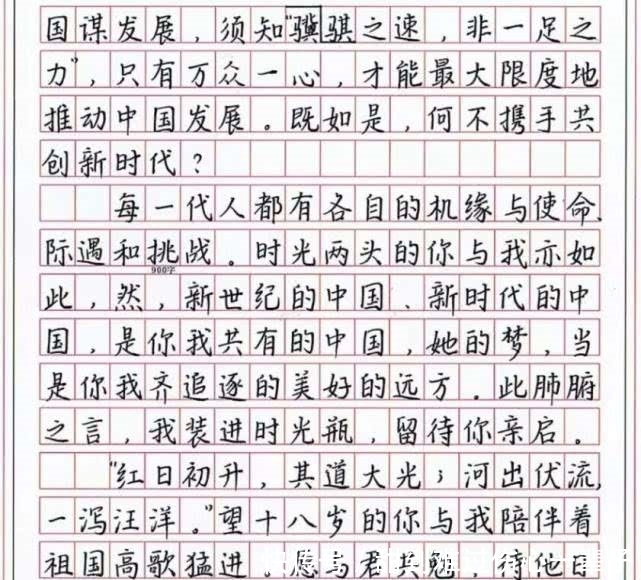 国谋发展，须知“骥骐之速，非一足之
力”，只有万众一心，才能最大限度地
推动中国发展。既如是，何不携手共
创新时代？
每一代人都有各自的机缘与使命、
际遇和挑战。时光两头的你与我亦如
900字
此，然，新世纪的中国、新时代的中
国，是你我共有的中国，她的梦，当
是你我齐追逐的美好的远方。此肺腑
之言，我装进时光瓶，留待你亲启。
“红日初升，其道大光；河出伏流，
一泻汪洋。”望十八岁的你与我陪伴着
祖国高歌猛进。愿与君共勉，